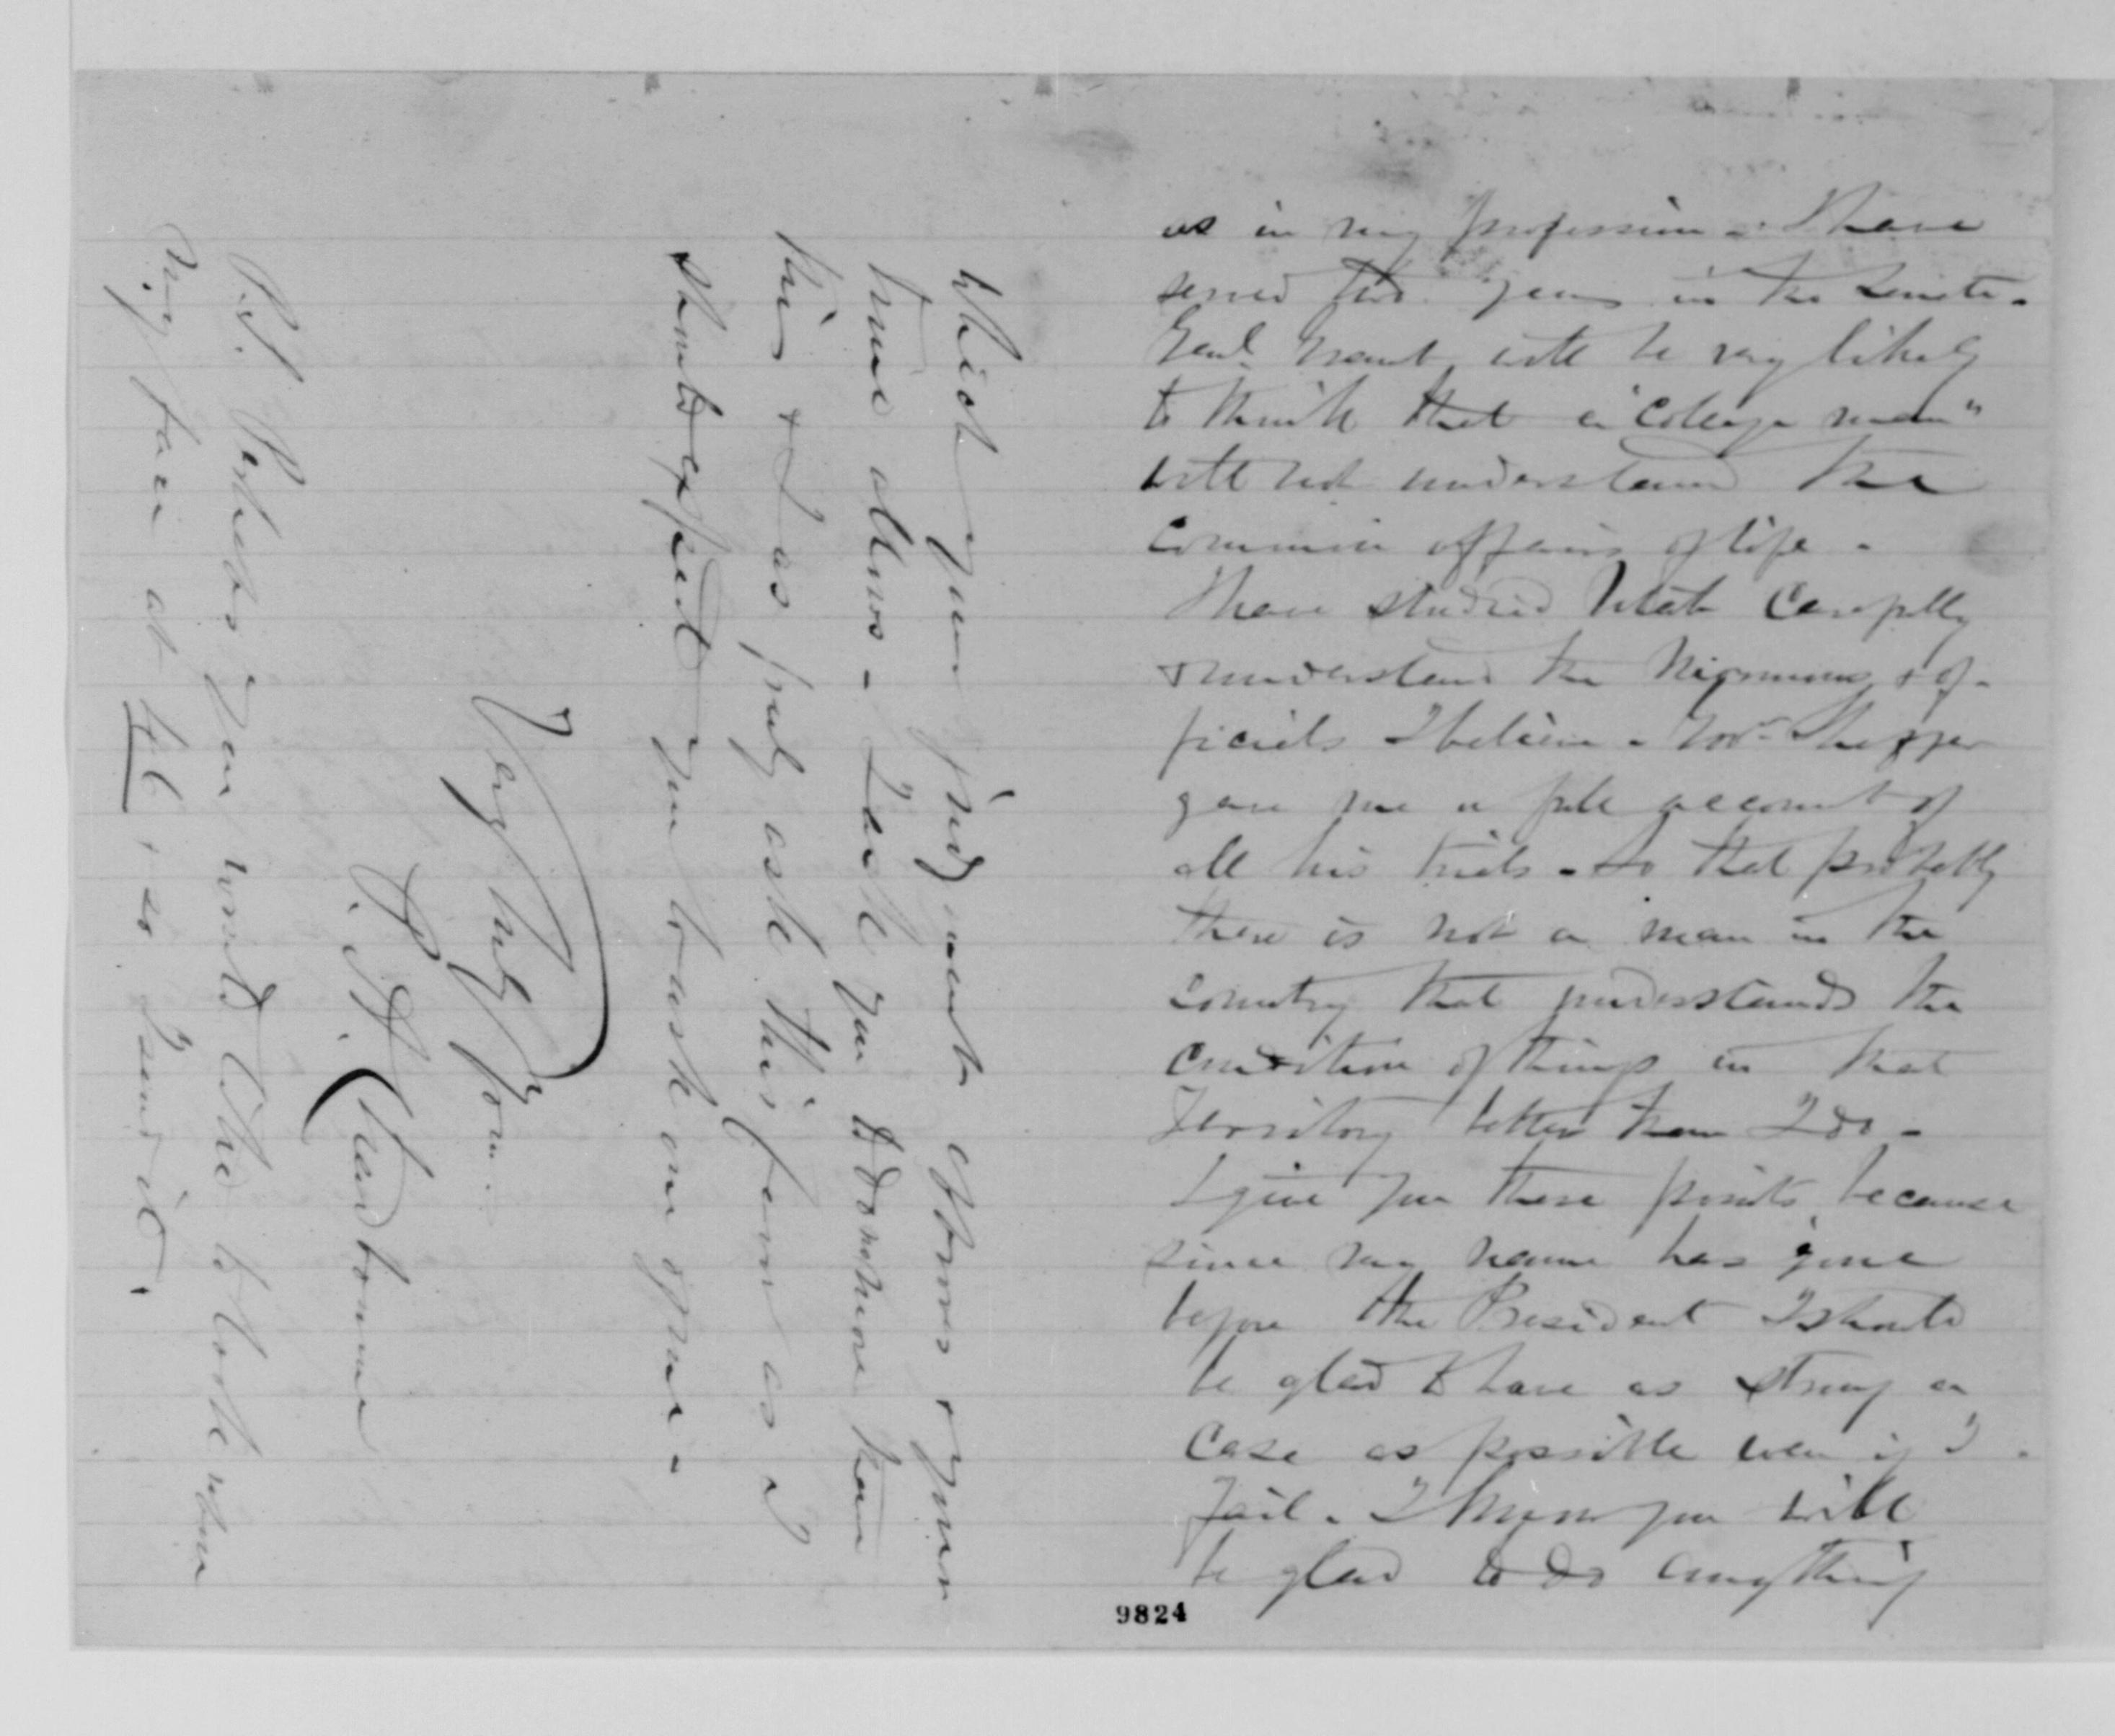 as in my profession - I have
served two years in the Senate.
Genl. Grant will be very likely
to think that a "College man"
will not understand the
common affairs of life -
I have studied Utah carefully
& understand the Mormons & of-
ficials I believe - Gov. Shaffer
gave me a full account of
all his trials - so that probably
there is not a man in the
country that understands the
condition of things in that
Territory better than I do -
I give you these points because
since my name has gone
before the President I should
be glad to have as strong a
case as possible even if I
fail. I know you will
be glad to do anything
9824
which your judgment approves & your
time allows - I ask you to do no more than
this & I as freely ask this favor as I
should expect you to ask one of me -
Very truly Yours
P. A. Chadbourne
P.S. Perhaps you would like to look upon
my face at , so I send it.